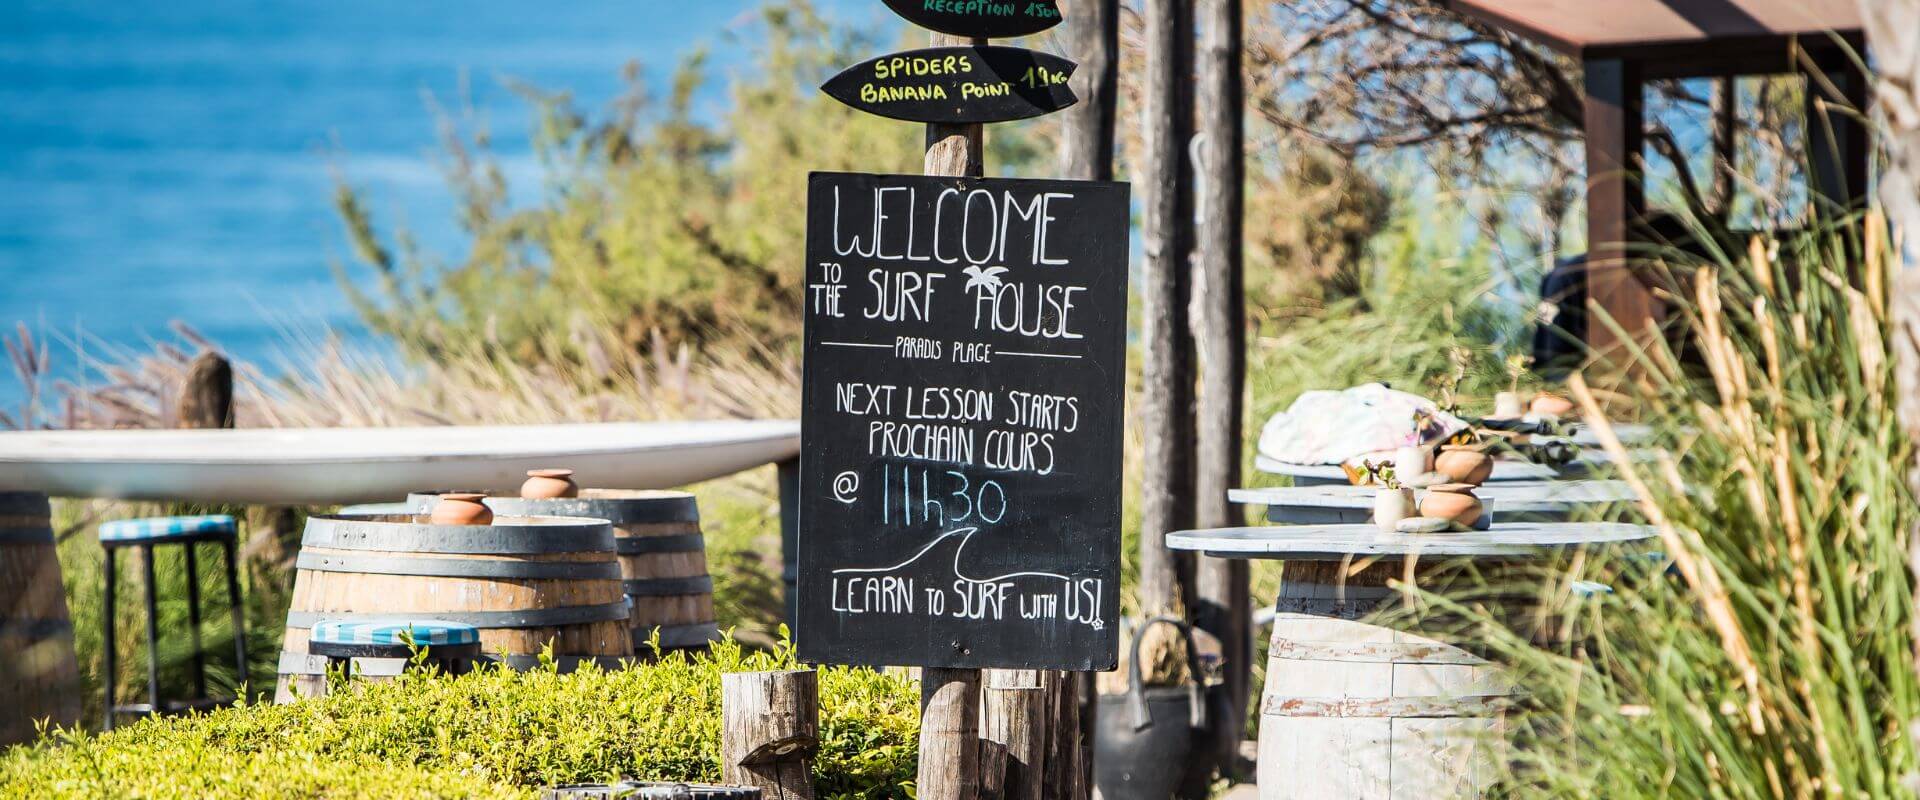 RECEPTION 150m
SPiDERS
BANANA POiNT 19Km
WELCOME
TO THE SURF HOUSE
PARADIS PLAGE
NEXT LESSON STARTS
PROCHAIN COURS
@ 11h30
LEARN TO SURF WITH US!